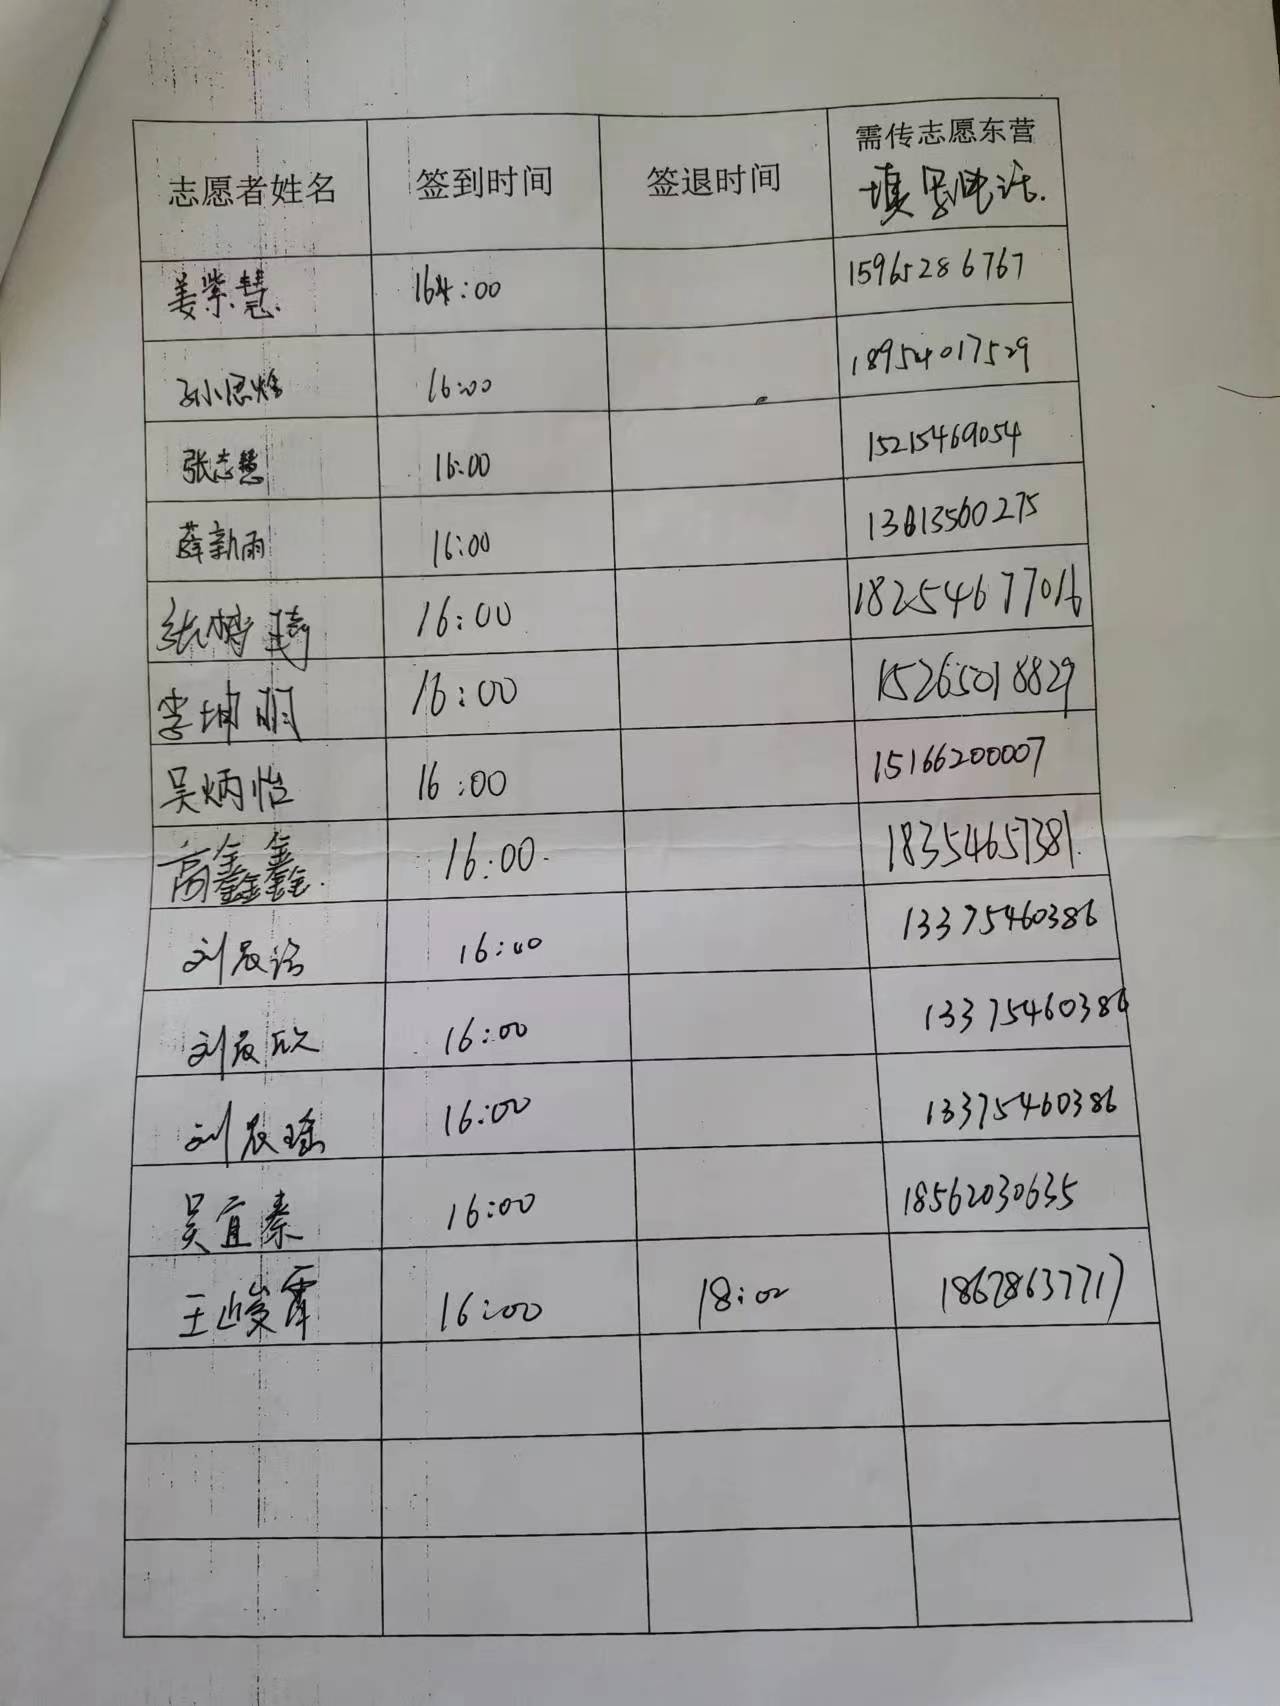 志愿者姓名 签到时间 签退时间 需传志愿东营
填写电话.
姜紫慧. 16:00 15965286767
孙思 16:00 18954017529
张志慧 16:00 15215469054
薛新雨 16:00 13613560275
张 琦 16:00 18254677016
李坤 16:00 15265018829
吴炳怡 16:00 15166200007
高鑫鑫. 16:00. 18354657381.
刘辰 16:00 13375460386
刘辰欣 16:00 13375460386
刘辰瑶 16:00 13375460386
吴宜秦 16:00 18562030635
王峻霏 16:00 18:00 18678637717